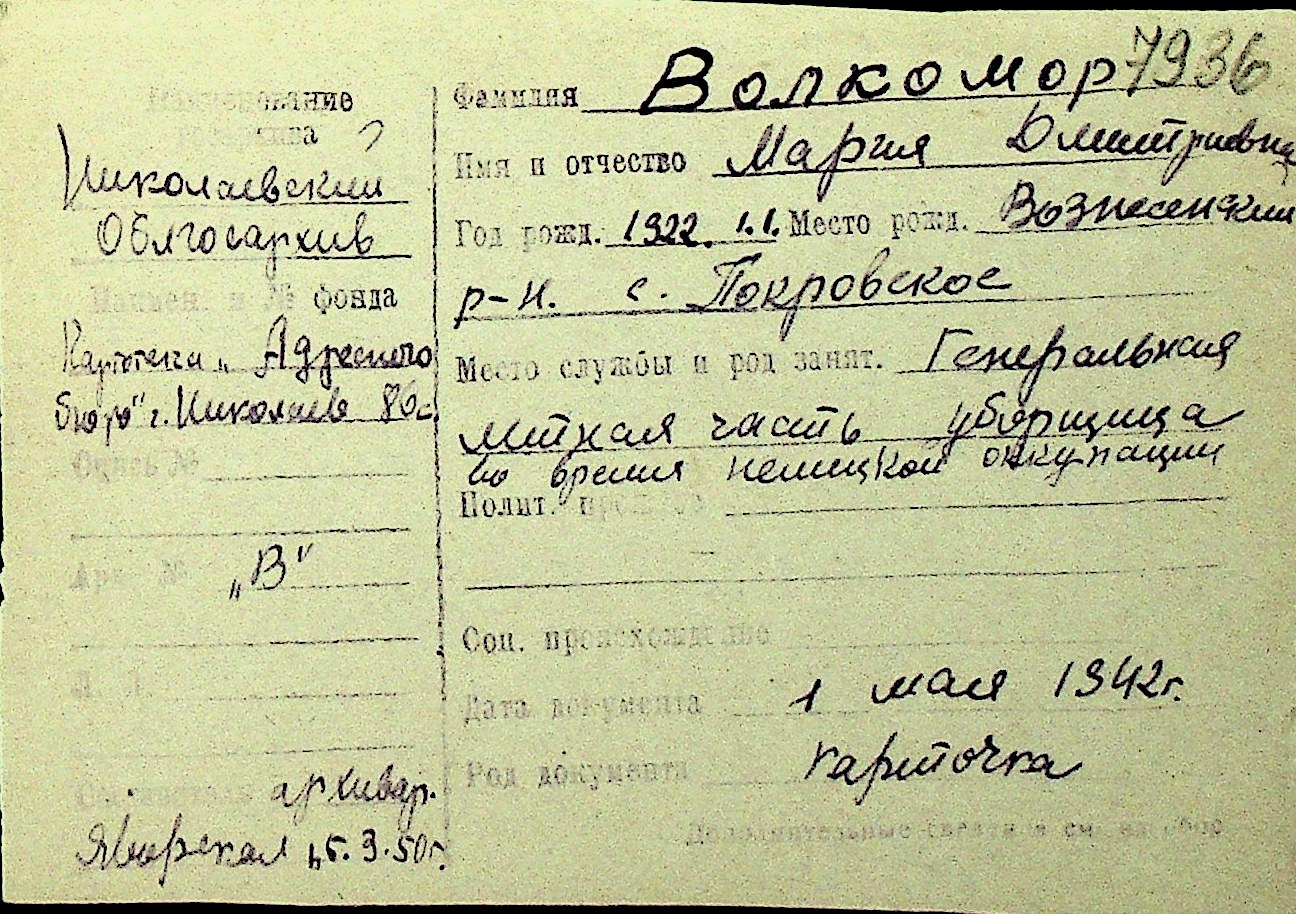 Наименование
Николаевский
Облгосархив
Наимен. и № фонда
Картотека „Адресного
бюро" г. Николаев 86с
Опись №
Арх. №
„В"
архивар.
Яворская 5.9.50г.
7936
Фамилия Волкомор
Имя и отчество Мария Дмитриевна
Год рожд. 1922. 1.1. Место рожд. Вознесенский
р-н. с. Покровское
Место службы и род занят. Генеральная
уборщица
во время немецкой оккупации
Полит.
Соц. происхождение
Дата документа 1 мая 1942г.
Род документа карточка
Дополнительные сведения см. на обор.